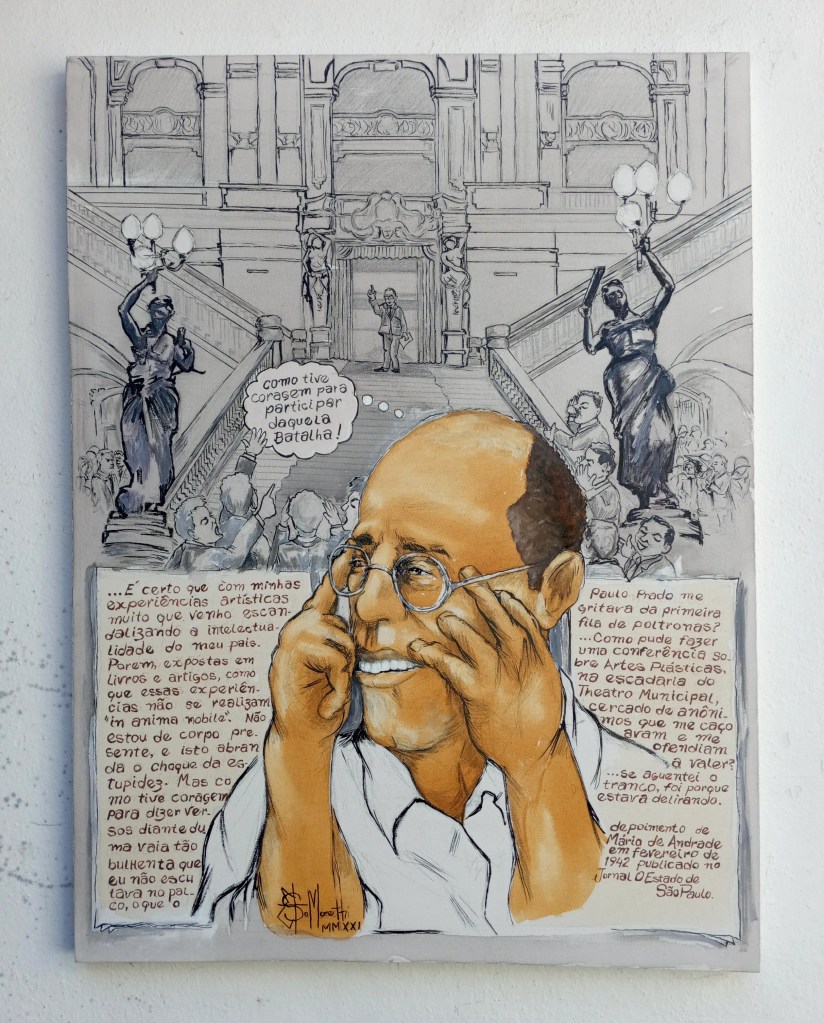 como tive
coragem para
participar
daquela
Batalha!
...É certo que com minhas
experiências artísticas
muito que venho escan-
dalizando a intelectua-
lidade do meu país.
Porem, expostas em
livros e artigos, como
que essas experiên-
cias não se realizam
"in anima nobile". Não
estou de corpo pre-
sente, e isto abran
da o choque da es-
tupidez. Mas co
mo tive coragem
para dizer ver
sos diante du
ma vaia tão
bulhenta que
eu não escu
tava no pal-
co, o que o
Paulo Prado me
gritava da primeira
fila de poltronas?
...Como pude fazer
uma conferência so-
bre Artes Plásticas,
na escadaria do
Theatro Municipal,
cercado de anôni-
mos que me caço
avam e me
ofendiam
a valer?
...se aguentei o
tranco, foi porque
estava delirando.
depoimento de
Mário de Andrade
em fevereiro de
1942 publicado no
Jornal O Estado de
São Paulo.
MMXXI